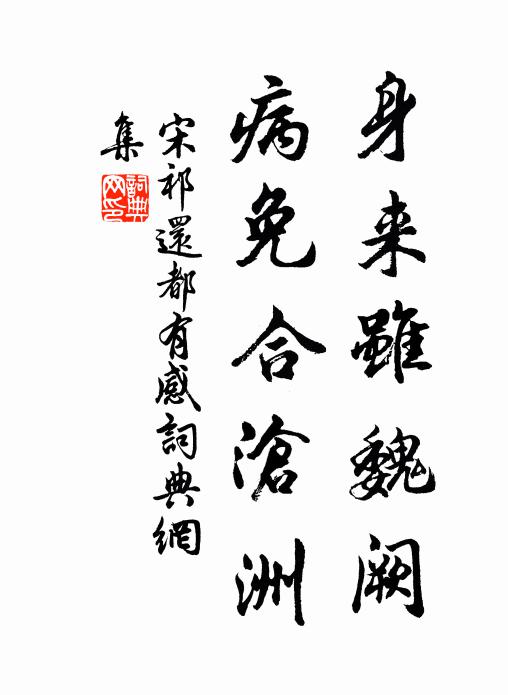 身来雖魏阙
病免合滄洲
宋祁還都有感詞典網
集
詞典网印